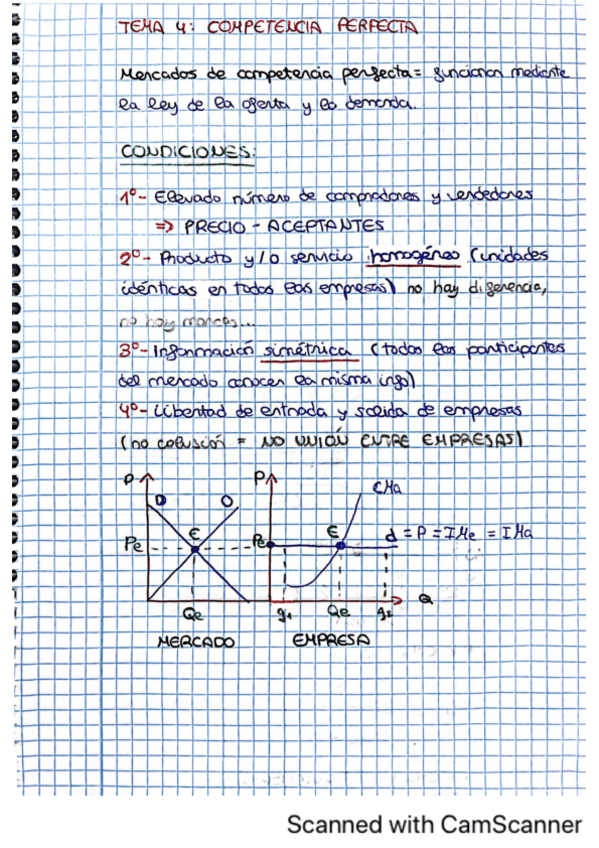 TEMA 4: COMPETENCIA PERFECTA
Mercados de competencia perfecta = funcionan mediante
la ley de la oferta y la demanda.
CONDICIONES:
1º- Elevado número de compradores y vendedores
=> PRECIO - ACEPTANTES
2º- Producto y/o servicio homogéneo (unidades
idénticas en todas las empresas) no hay diferencia,
no hay marcas...
3º- Información simétrica (todos los participantes
del mercado conocen la misma info)
4º- Libertad de entrada y salida de empresas
(no colusión = NO UNIÓN ENTRE EMPRESAS)
P D O P CMa
Pe E Pe E d = P = IMe = IMa
Qe q1 Qe q2 Q
MERCADO EMPRESA
Scanned with CamScanner